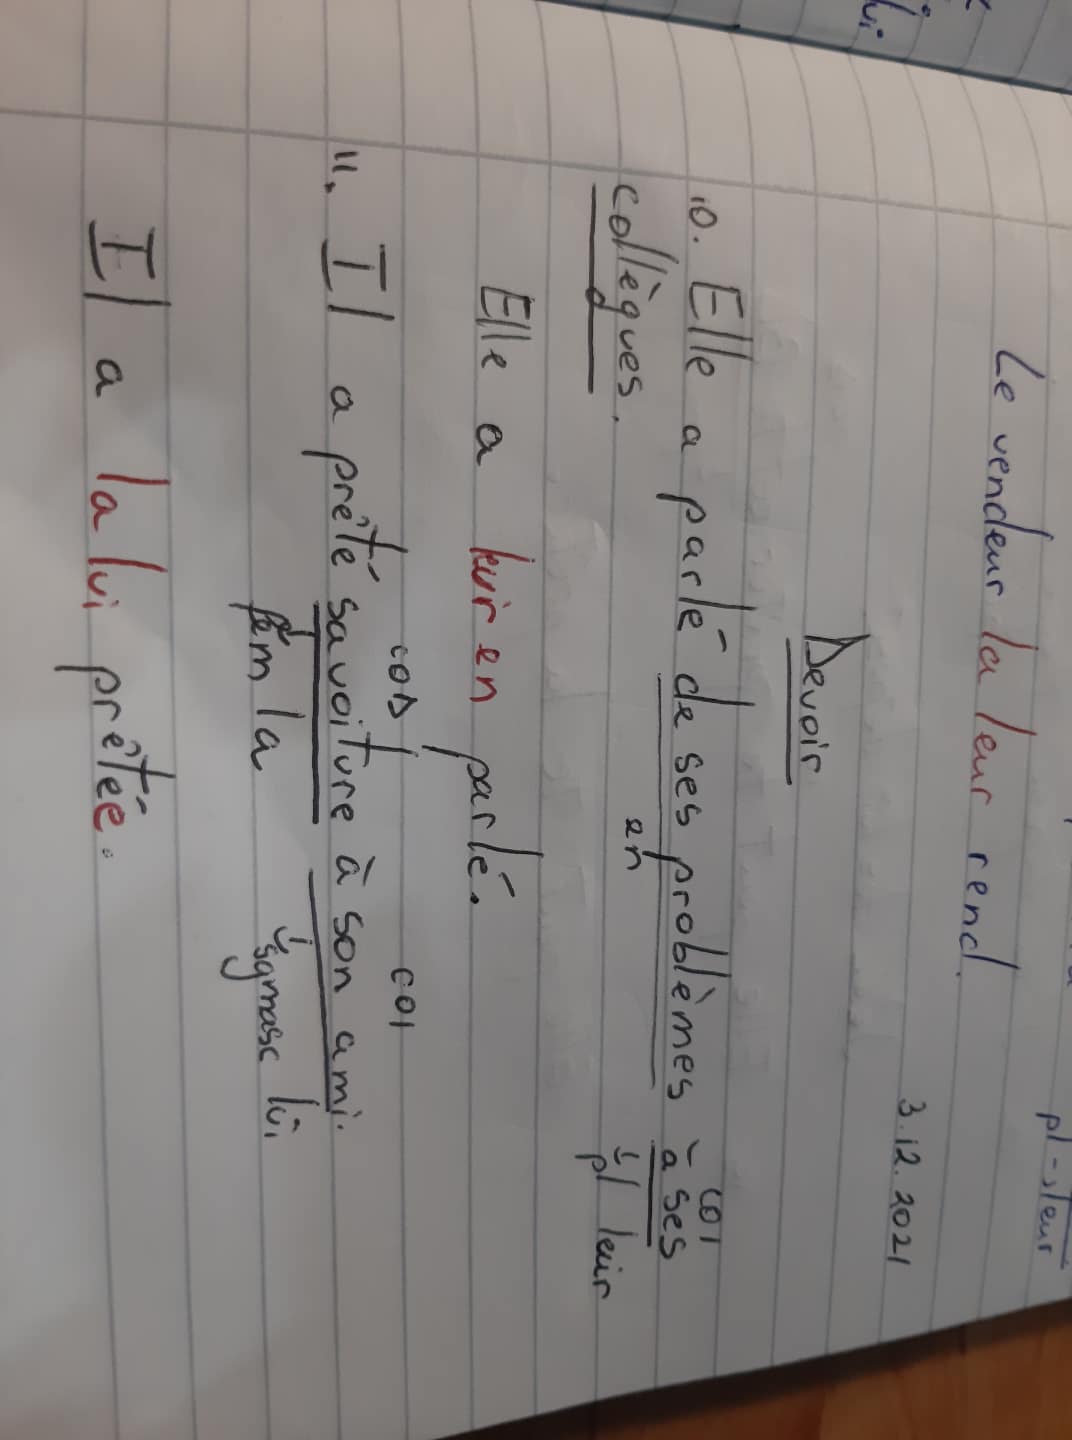 pl → leur
Le vendeur la leur rend.
3.12.2021
Devoir
COI
10. Elle a parlé de ses problèmes à ses
en
pl leur
collègues.
Elle a leur en parlé.
COD COI
11. Il a prêté sa voiture à son ami.
fém la sg masc lui
Il a la lui prêtée.